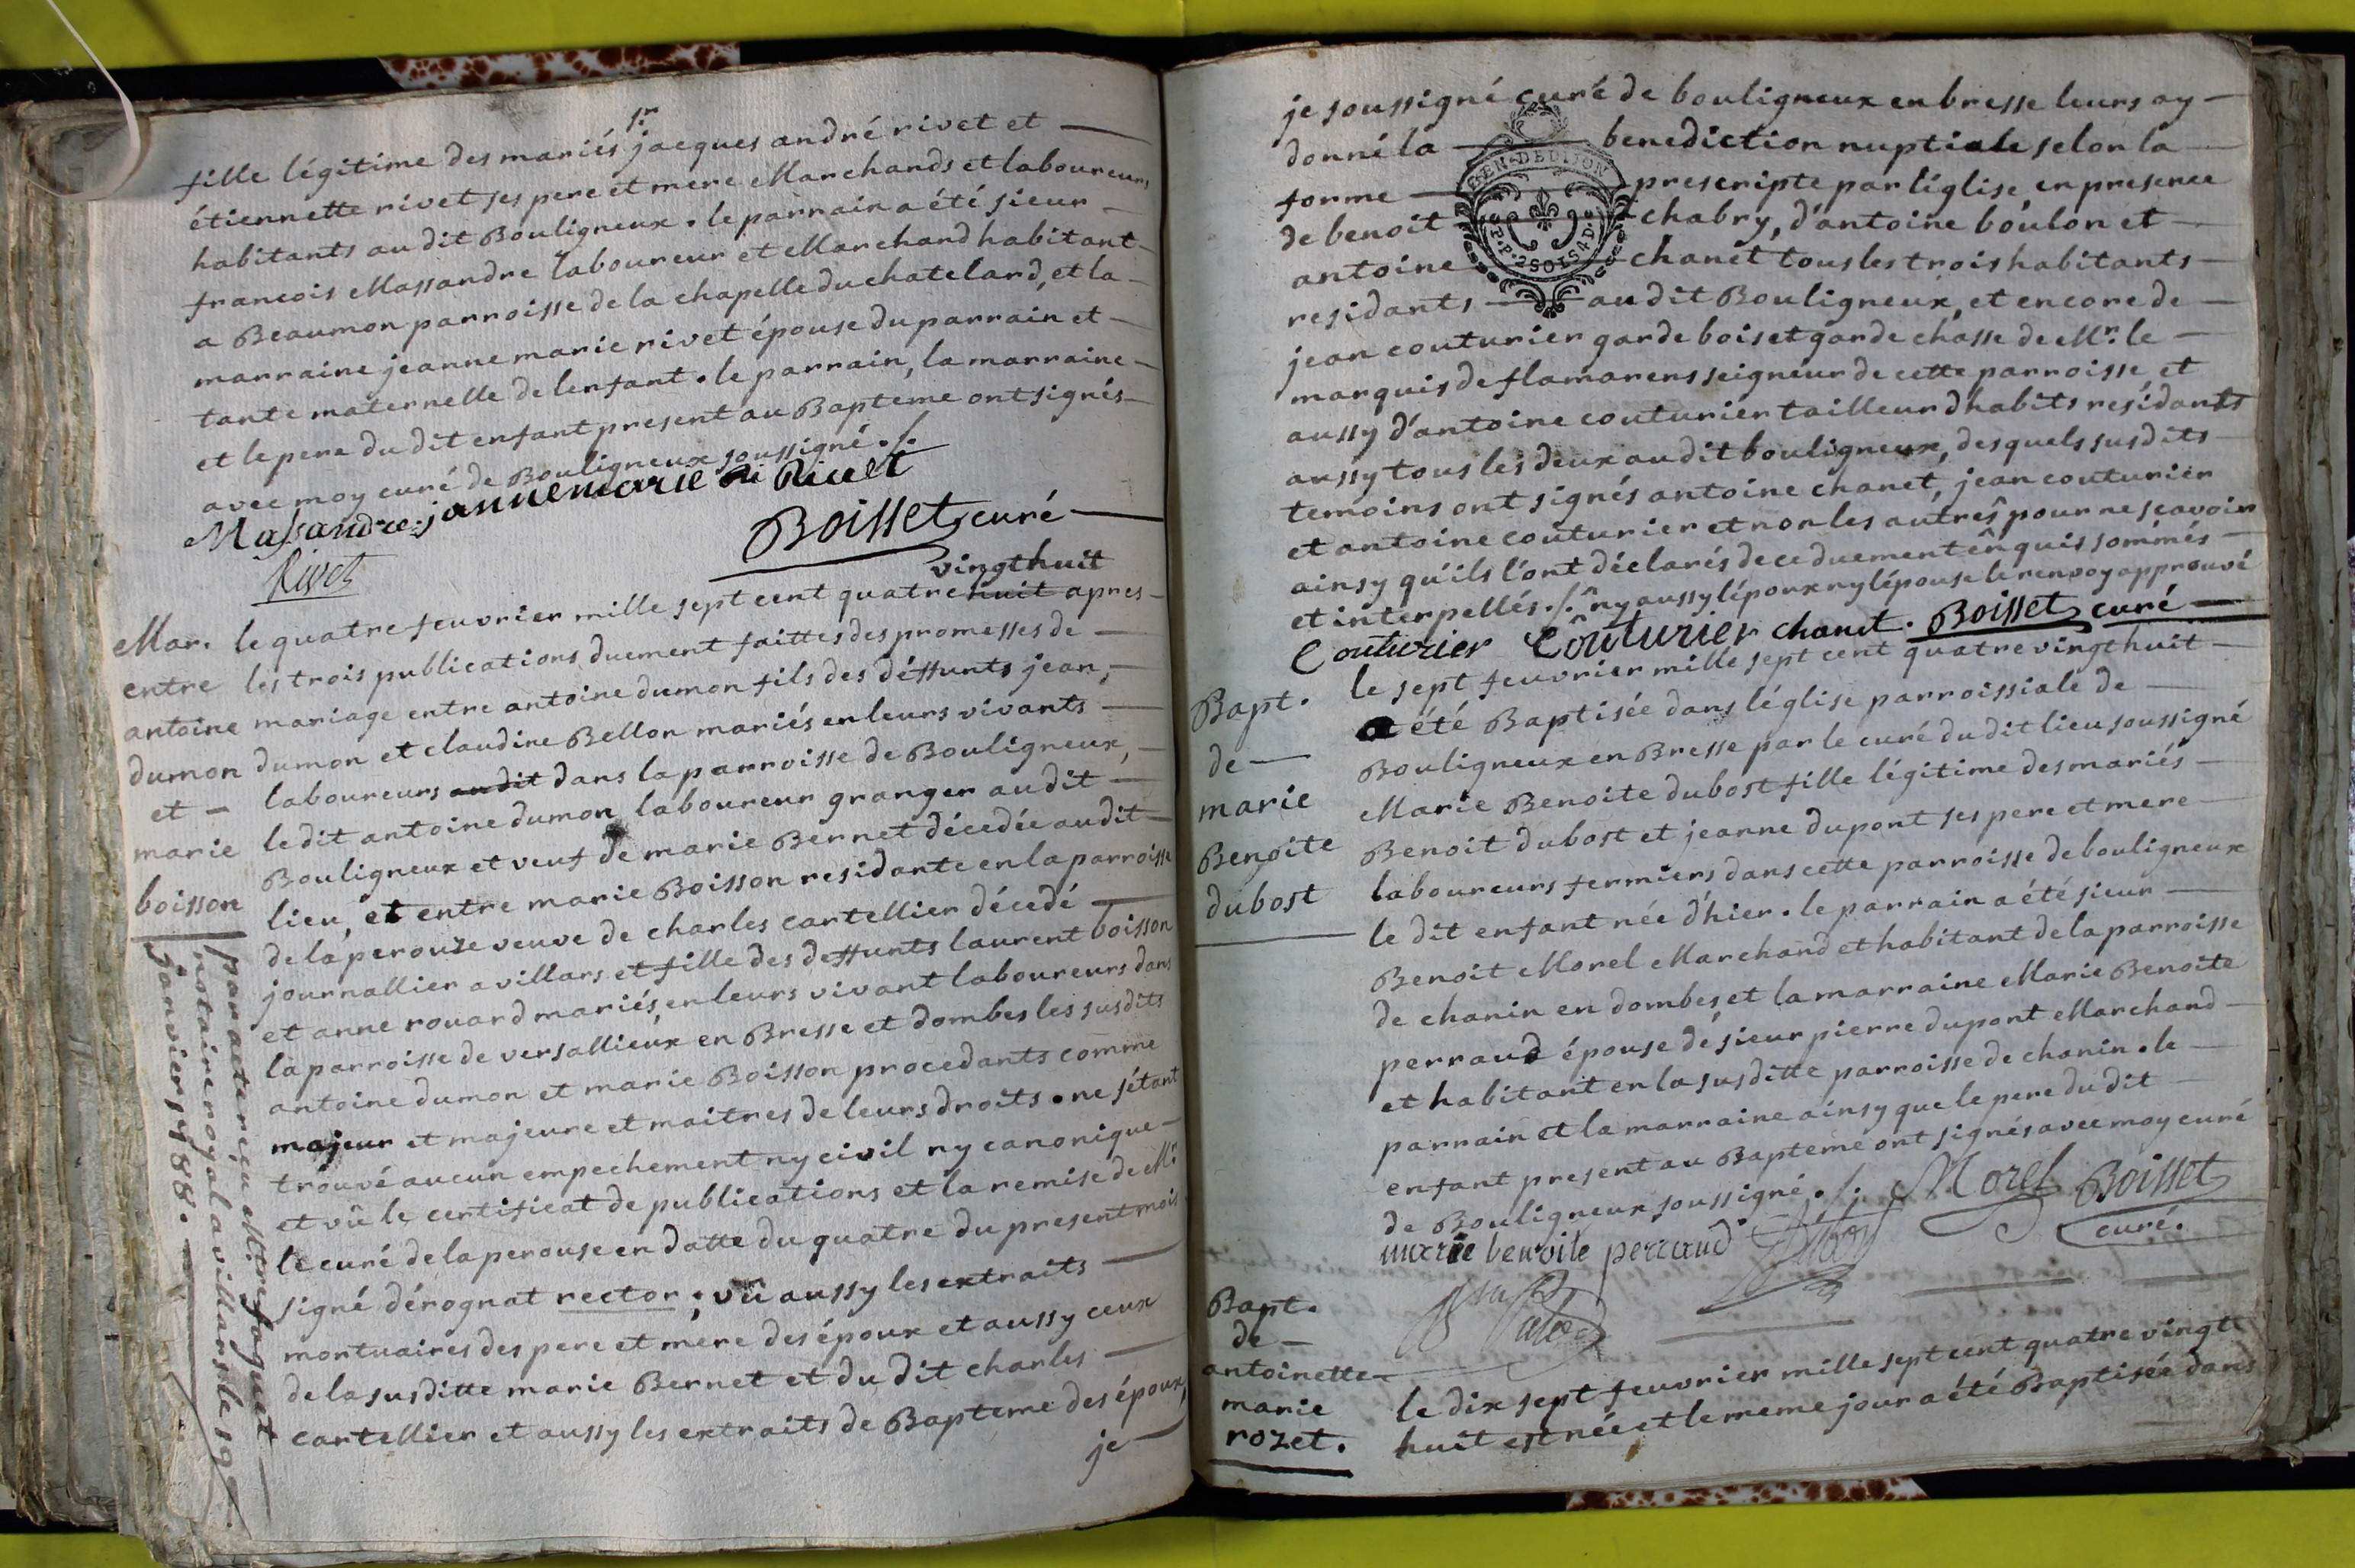 sr
fille légitime des mariés jacques andré rivet et
étiennette rivet ses pere et mere Marchands et laboureurs
habitants au dit Bouligneux. le parrain a été sieur
francois Massandre laboureur et Marchand habitant
a Beaumon parroisse de la chapelle du chatelard, et la
marraine jeanne marie rivet épouse du parrain et
tante maternelle de lenfant. le parrain, la marraine
et le pere du dit enfant present au Bapteme ont signés
avec moy curé de Bouligneux soussigné ./.
Massandre jannemarie Ri Rivet
Boisset curé
Rivet
vingthuit
Mar. le quatre feuvrier mille sept cent quatre huit apres
entre les trois publications duement faittes des promesses de
antoine mariage entre antoine dumon fils des déffunts jean,
dumon dumon et claudine Bellon mariés en leurs vivants
et laboureurs audit dans la parroisse de Bouligneux,
marie le dit antoine dumon laboureur granger au dit
boisson Bouligneux et veuf de marie Bernet décedée au dit
lieu, et entre marie Boisson residante en la parroisse
de la perouze veuve de charles cartellier décedé
journallier a villars et fille des deffunts laurent boisson
et anne rouard mariés, en leurs vivant laboureurs dans
la parroisse de versallieux en Bresse et dombes les susdits
antoine dumon et marie Boisson procedants comme
majeur et majeure et maitres de leurs droits. ne s'étant
trouvé aucun empechement ny civil ny canonique
et vû le certificat de publications et la remise de Mr.
le curé de la perouse en datte du quatre du present mois
signé dérognat rector; vû aussy les extraits
mortuaires des pere et mere des époux et aussy ceux
de la susditte marie Bernet et du dit charles
cartellier et aussy les extraits de Bapteme des époux,
je
par acte reçu Mtre faguet
notaire royal a villars le 19e
janvier 1788.
je soussigné curé de bouligneux en bresse leurs ay
donné la benediction nuptiale selon la
forme prescripte par léglise, en presence
de benoit chabry, d'antoine boulon et
antoine chanet tous les trois habitants
residants au dit Bouligneux, et encore de
jean couturier garde bois et garde chasse de Mr. le
marquis de flamarens seigneur de cette parroisse, et
aussy d'antoine couturier tailleur dhabits residants
aussy tous les deux au dit bouligneux, desquels susdits
temoins ont signés antoine chanet, jean couturier
et antoine couturier et non les autres pour ne scavoir
ainsy qu'ils l'ont déclarés de ce duement enquis sommés
et interpellés ./. ny aussy lépoux ny lépouse le renvoy approuvé
Couturier Couturier chanet. Boisset curé
GEN. DE DIJON
2. SOLS 4 D.
Bapt.
de
marie
Benoite
dubost
le sept feuvrier mille sept cent quatre vingthuit
a été Baptisée dans léglise parroissiale de
Bouligneux en Bresse par le curé du dit lieu soussigné
Marie Benoite dubost fille légitime des mariés
Benoit dubost et jeanne dupont ses pere et mere
laboureurs fermiers dans cette parroisse de bouligneux
le dit enfant née d'hier. le parrain a été sieur
Benoit Morel Marchand et habitant de la parroisse
de chanin en dombes, et la marraine Marie Benoite
perraud épouse de sieur pierre dupont Marchand
et habitant en la susditte parroisse de chanin. le
parrain et la marraine ainsy que le pere du dit
enfant present au Bapteme ont signés avec moy curé
de Bouligneux soussigné ./. Morel Boisset
marie benoite perraud curé.
Bapt.
de
antoinette
marie
rozet.
le dix sept feuvrier mille sept cent quatre vingt
huit est née et le meme jour a été Baptisée dans